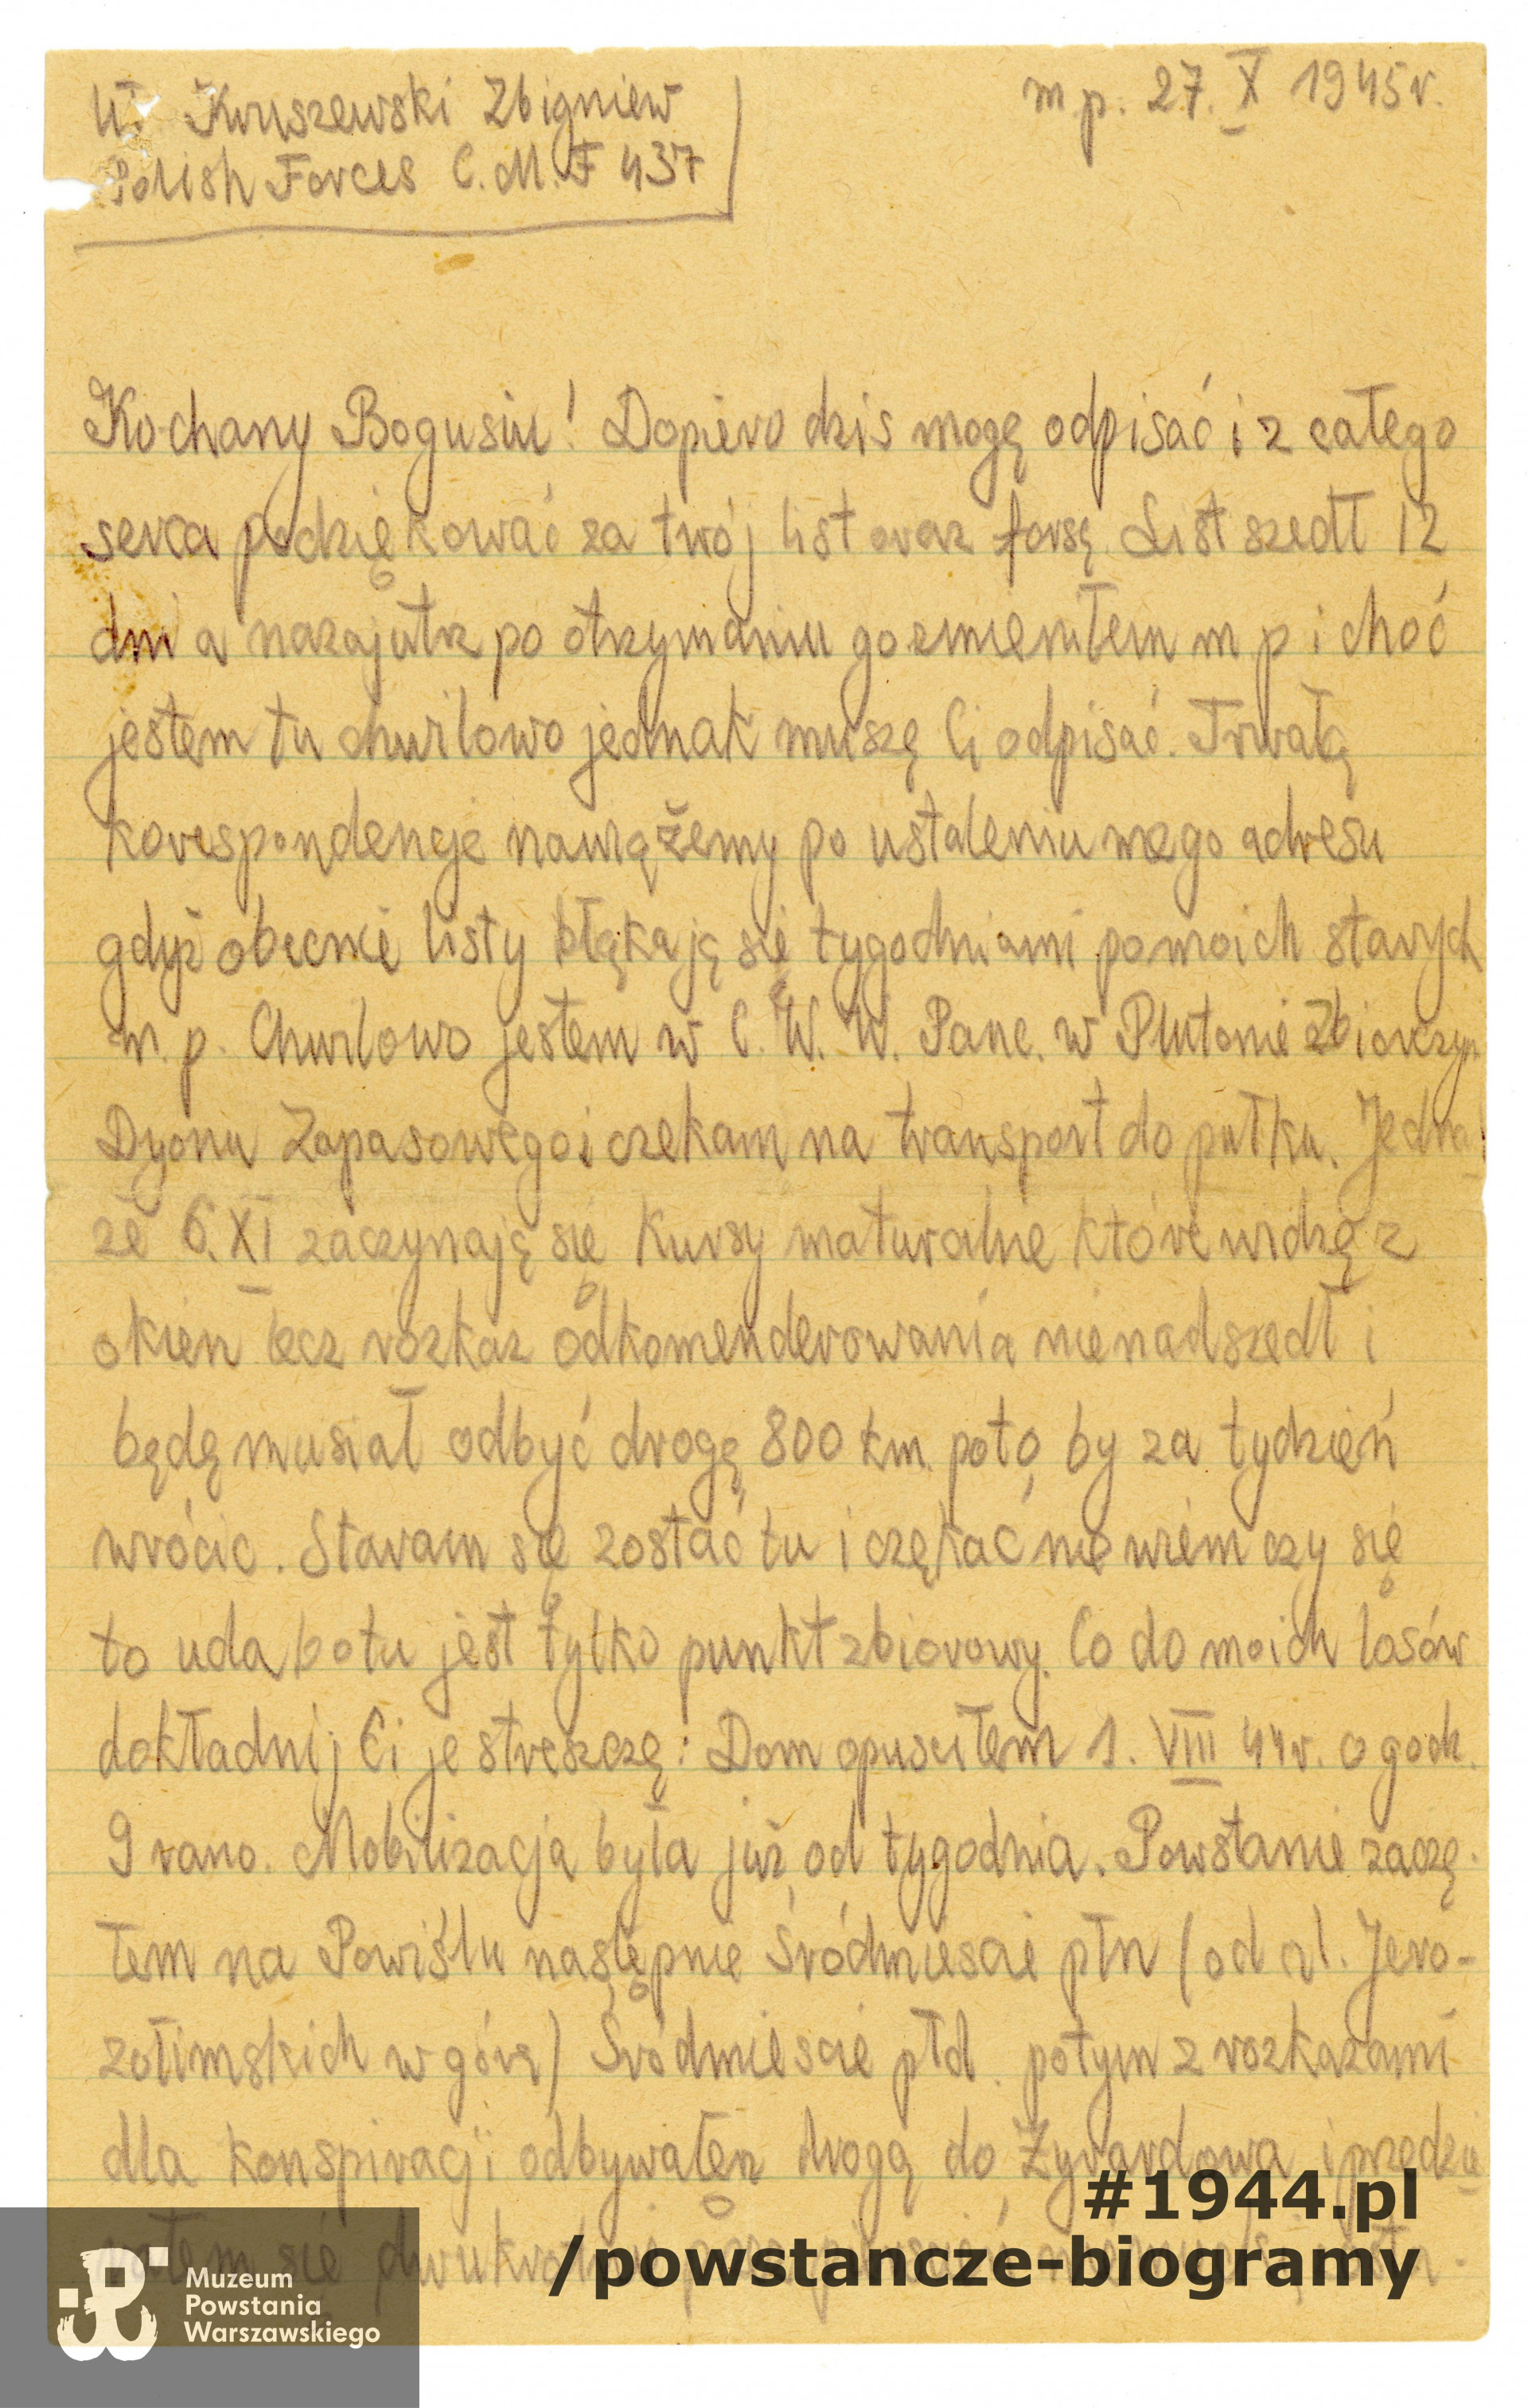 Uł. Kruszewski Zbigniew
Polish Forces C.M.F 437
m.p. 27. X 1945r.
Kochany Bogusiu! Dopiero dzis mogę odpisać i z całego
serca podziękować za twój list oraz forsę. List szedł 12
dni a nazajutrz po otrzymaniu go zmieniłem m p i choć
jestem tu chwilowo jednak muszę Ci odpisać. Trwałą
korespondencje nawiążemy po ustaleniu mego adresu
gdyż obecnie listy błąkają się tygodniami po moich starych
m. p. Chwilowo jestem w C. W. W. Panc. w Plutonie Zbiorczym
Dyonu Zapasowego i czekam na transport do pułku. Jedna
ze 6.XI zaczynają się kursy maturalne które widzę z
okien lecz rozkaz odkomenderowania nie nadszedł i
będę musiał odbyć drogę 800 km. poto by za tydzień
wrócic. Staram się zostać tu i czekać nie wiem czy się
to uda bo tu jest tylko punkt zbiorowy. Co do moich losów
dokładnij Ci je streszczę: Dom opusciłem 1. VIII 44r. o godz.
9 rano. Mobilizacja była już od tygodnia. Powstanie zaczę-
łem na Powiślu następnie Śródmiescie płn (od al. Jero-
zolimskich w górę) Śródmiescie płd. potym z rozkazami
dla konspiracji odbywałem drogę do Żyrardowa i przedzie
się dwukrotnie
#1944.pl
/powstancze-biogramy
Muzeum
Powstania
Warszawskiego